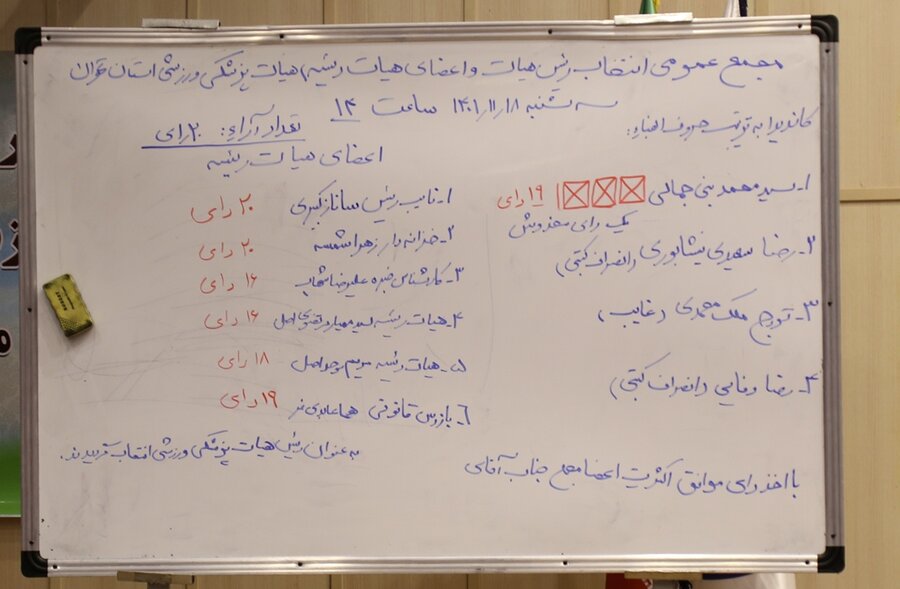 مجمع عمومی انتخاب رئیس هیات و اعضای هیات رئیسه هیات پزشکی ورزشی استان تهران
سه شنبه ۱۴۰۱/۱۱/۱۸ ساعت ۱۴
کاندیدا به ترتیب حروف الفباء:
۱- سید محمد بنی جمالی ۱۹ رای
یک رای مخدوش
۲- رضا سعیدی نیشابوری (انصراف کتبی)
۳- تورج ملک محمدی (غایب)
۴- رضا وفایی (انصراف کتبی)
تعداد آراء: ۲۰ رای
اعضای هیات رئیسه
۱- نایب رئیس ساناز کبیری ۲۰ رای
۲- خزانه دار زهرا شمسه ۲۰ رای
۳- کارشناس خبره علیرضا شهاب ۱۶ رای
۴- هیات رئیسه سید مهیار تقوی اصل ۱۶ رای
۵- هیات رئیسه مریم 18 رای
۶- بازرس قانونی هما ۱۹ رای
با اخذ رای موافق اکثریت اعضا مجمع جناب آقای
به عنوان رئیس هیات پزشکی ورزشی انتخاب گردیدند.